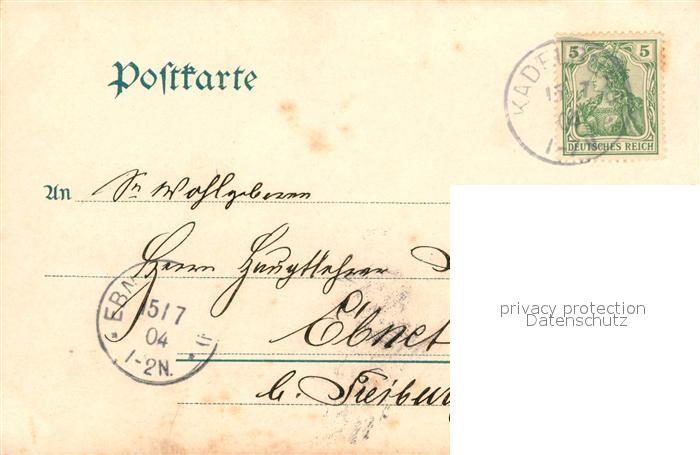 Postkarte
5 5
DEUTSCHES REICH
15 7
04
An Sr Wohlgeboren
Herrn Hauptlehrer
15/7
04
1-2N.
Ebnet
b. Freiburg
privacy protection
Datenschutz